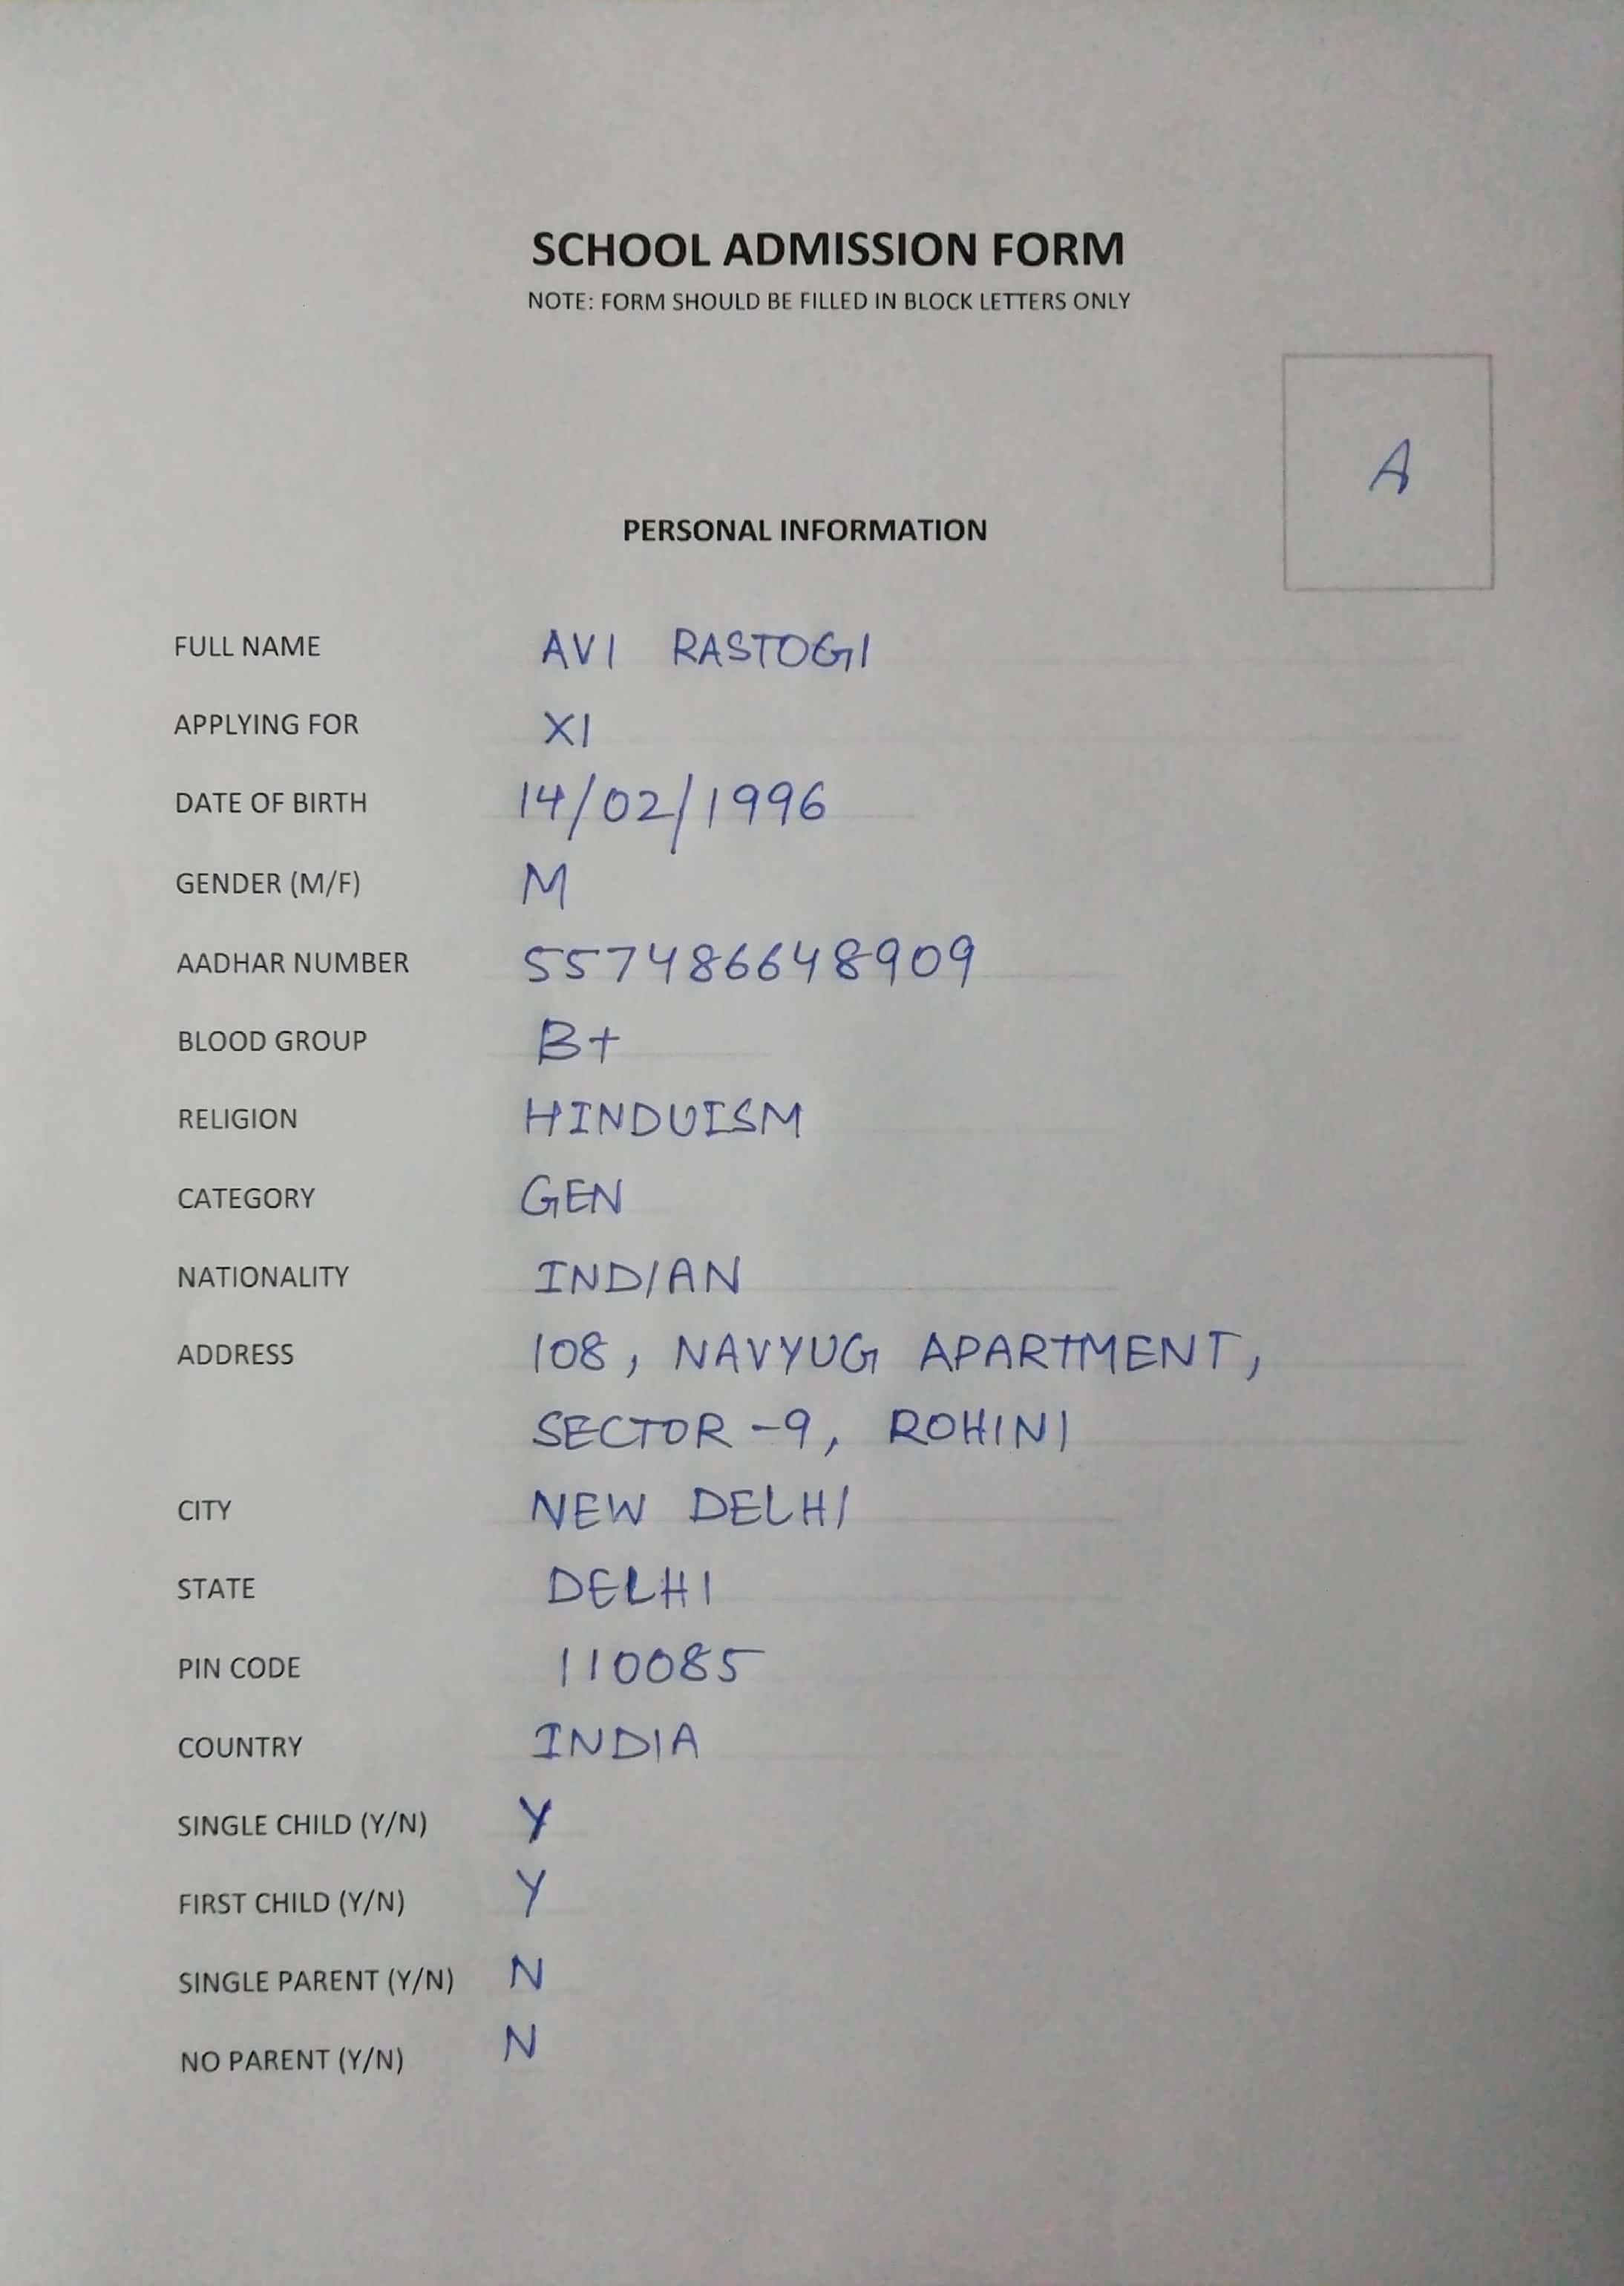 SCHOOL ADMISSION FORM
NOTE: FORM SHOULD BE FILLED IN BLOCK LETTERS ONLY
A
PERSONAL INFORMATION
FULL NAME AVI RASTOGI
APPLYING FOR XI
DATE OF BIRTH 14/02/1996
GENDER (M/F) M
AADHAR NUMBER 557486648909
BLOOD GROUP B+
RELIGION HINDUISM
CATEGORY GEN
NATIONALITY INDIAN
ADDRESS 108, NAVYUG APARTMENT,
SECTOR-9, ROHINI
CITY NEW DELHI
STATE DELHI
PIN CODE 110085
COUNTRY INDIA
SINGLE CHILD (Y/N) Y
FIRST CHILD (Y/N) Y
SINGLE PARENT (Y/N) N
NO PARENT (Y/N) N